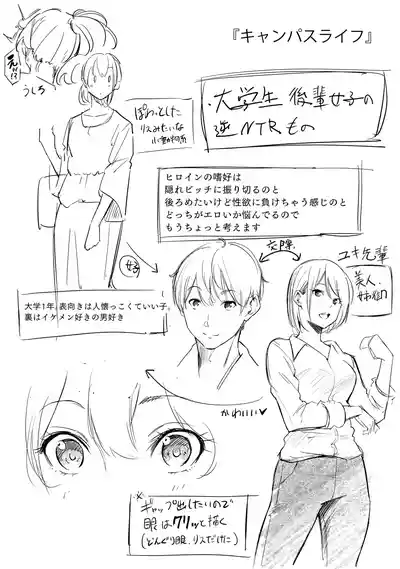 『キャンパスライフ』
えっ!?
うしろ
ぽわっとした
リスみたいな
小動物系
・大学生 後輩女子の
逆NTRもの
ヒロインの嗜好は
隠れビッチに振り切るのと
後ろめたいけど性欲に負けちゃう感じのと
どっちがエロいか悩んでるので
もうちょっと考えます
好
交際
ユキ先輩
美人、
大学1年、表向きは人懐っこくていい子。
裏はイケメン好きの男好き
かわいい
※
ギャップ出したいので
眼はクリッと描く
(どんぐり眼、リスだけに)